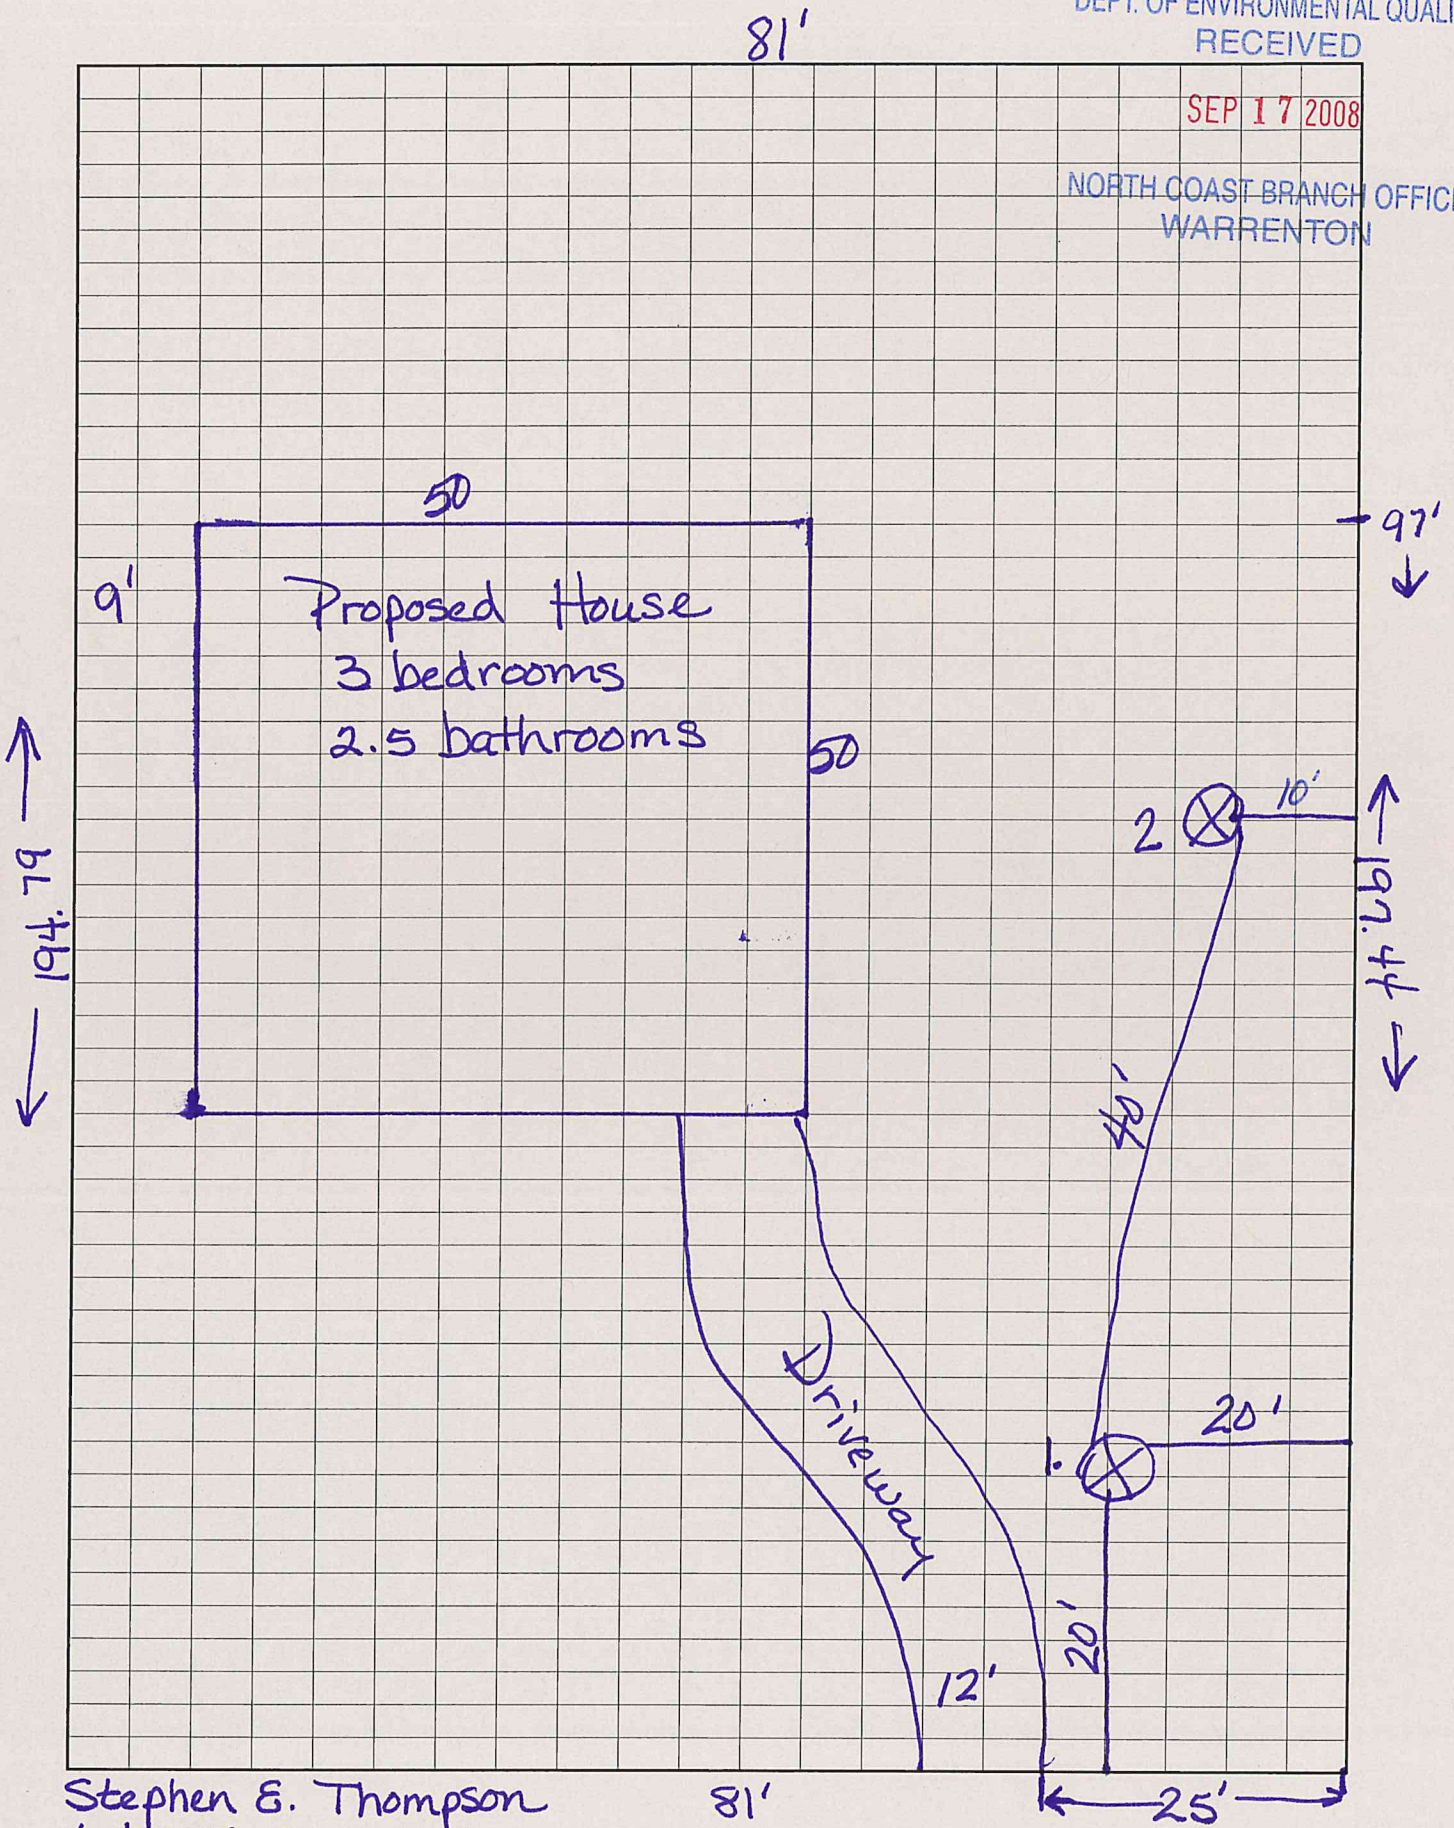 DEPT. OF ENVIRONMENTAL QUALI
RECEIVED
81'
SEP 17 2008
NORTH COAST BRANCH OFFICE
WARRENTON
50
97'
9'
Proposed House
3 bedrooms
2.5 bathrooms
50
10'
2
194.79
197.44
40'
Driveway
20'
1.
20'
12'
Stephen E. Thompson
81'
25'